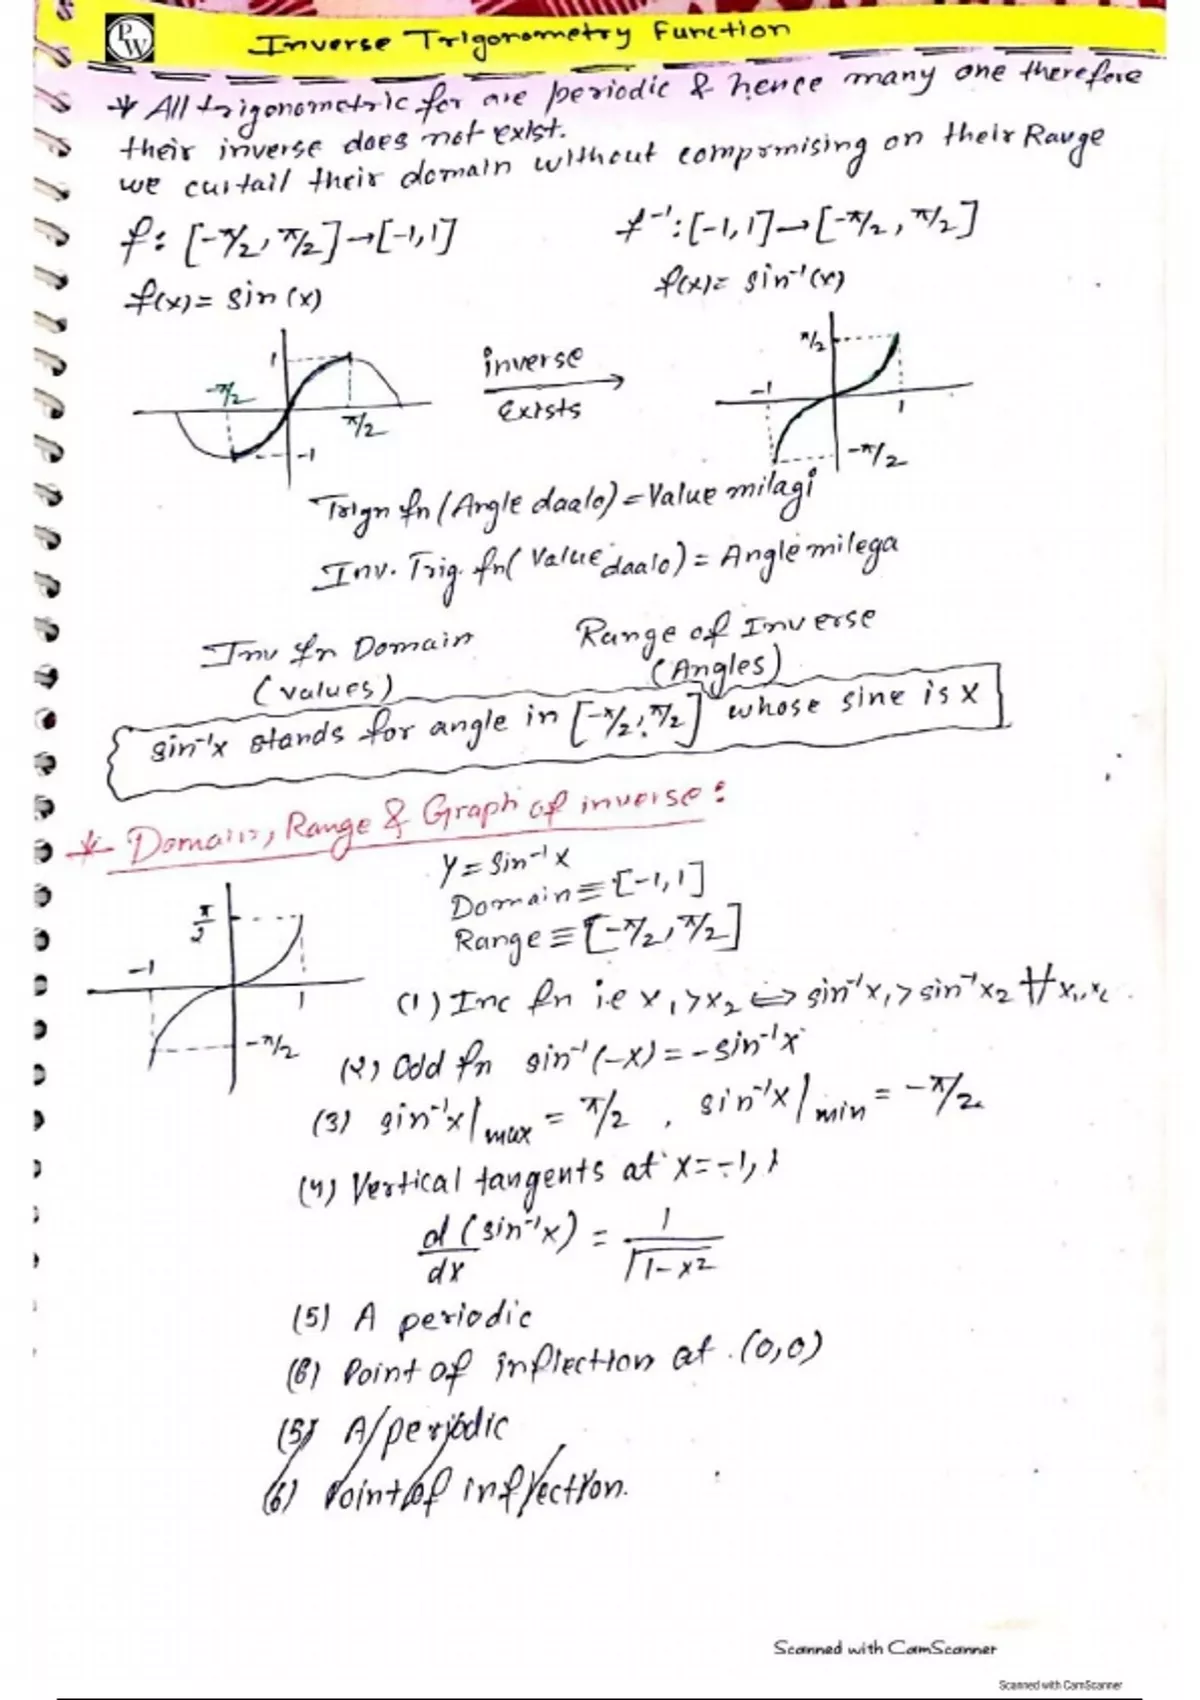 PW
Inverse Trigonometry Function
* All trigonometric fcn are periodic & hence many one therefore
their inverse does not exist.
we curtail their domain without compromising on their Range
f: [-π/2, π/2] → [-1,1]
f⁻¹: [-1,1] → [-π/2, π/2]
f(x) = sin (x)
f(x) = sin⁻¹(x)
1
-π/2
π/2
-1
inverse
Exists
π/2
-1
1
-π/2
Trign fn (Angle daalo) = Value milagi
Inv. Trig. fn( Value daalo) = Angle milega
Inv fn Domain
(values)
Range of Inverse
(Angles)
sin⁻¹x stands for angle in [-π/2, π/2] whose sine is x
* Domain, Range & Graph of inverse :
y = sin⁻¹x
Domain ≡ [-1,1]
Range ≡ [-π/2, π/2]
π/2
-1
1
-π/2
(1) Inc fn i.e x₁ > x₂ ⟺ sin⁻¹x₁ > sin⁻¹x₂ ∀ x₁, x₂
(2) Odd fn sin⁻¹(-x) = -sin⁻¹x
(3) sin⁻¹x|max = π/2 , sin⁻¹x|min = -π/2
(4) Vertical tangents at x = -1, 1
d(sin⁻¹x)/dx = 1/√1-x²
(5) A periodic
(6) Point of inflection at (0,0)
(5) A periodic
(6) Point of inflection.
Scanned with CamScanner
Scanned with CamScanner